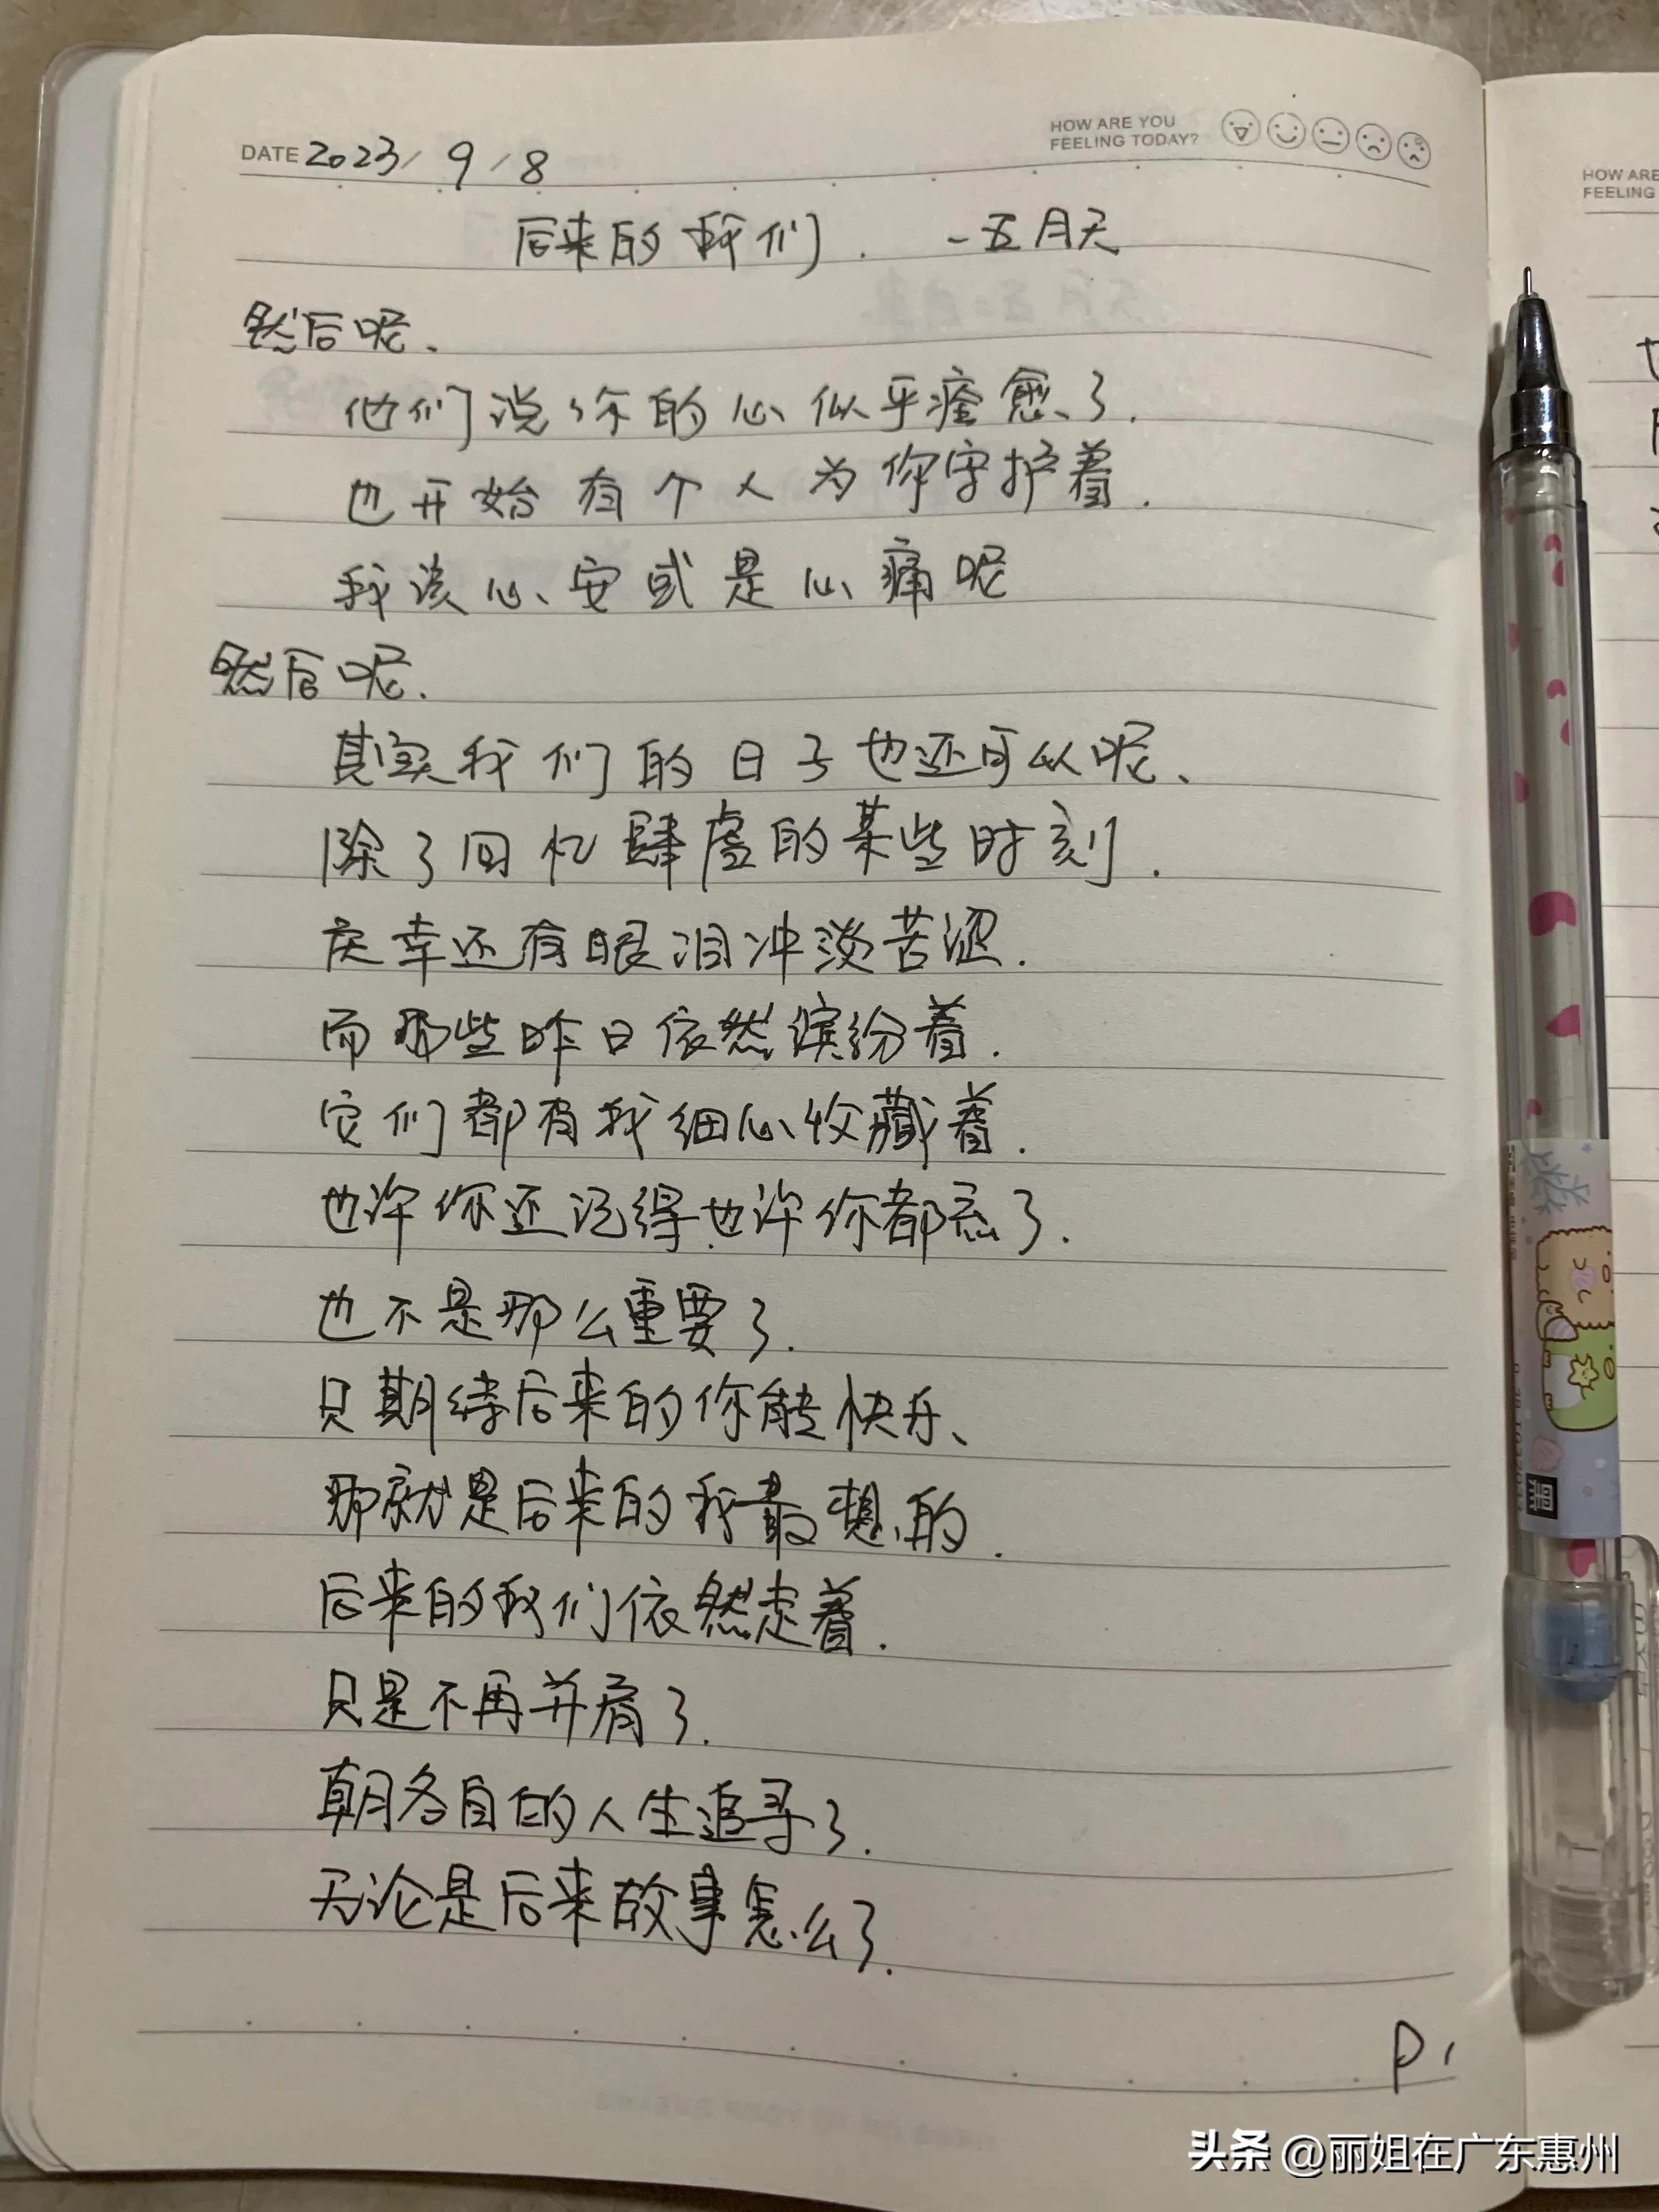 DATE 2023/9/8
HOW ARE YOU
FEELING TODAY?
后来的我们. -五月天
然后呢、
他们说你的心似乎痊愈了.
也开始有个人为你守护着.
我该心安或是心痛呢
然后呢.
其实我们的日子也还可以呢、
除了回忆肆虐的某些时刻.
庆幸还有眼泪冲淡苦涩.
而那些昨日依然缤纷着.
它们都有我细心收藏着.
也许你还记得也许你都忘了.
也不是那么重要了.
只期待后来的你能快乐、
那就是后来的我最想的.
后来的我们依然走着.
只是不再并肩了.
朝各自的人生追寻了.
无论是后来故事怎么了.
P1
HOW ARE
FEELING
头条 @丽姐在广东惠州